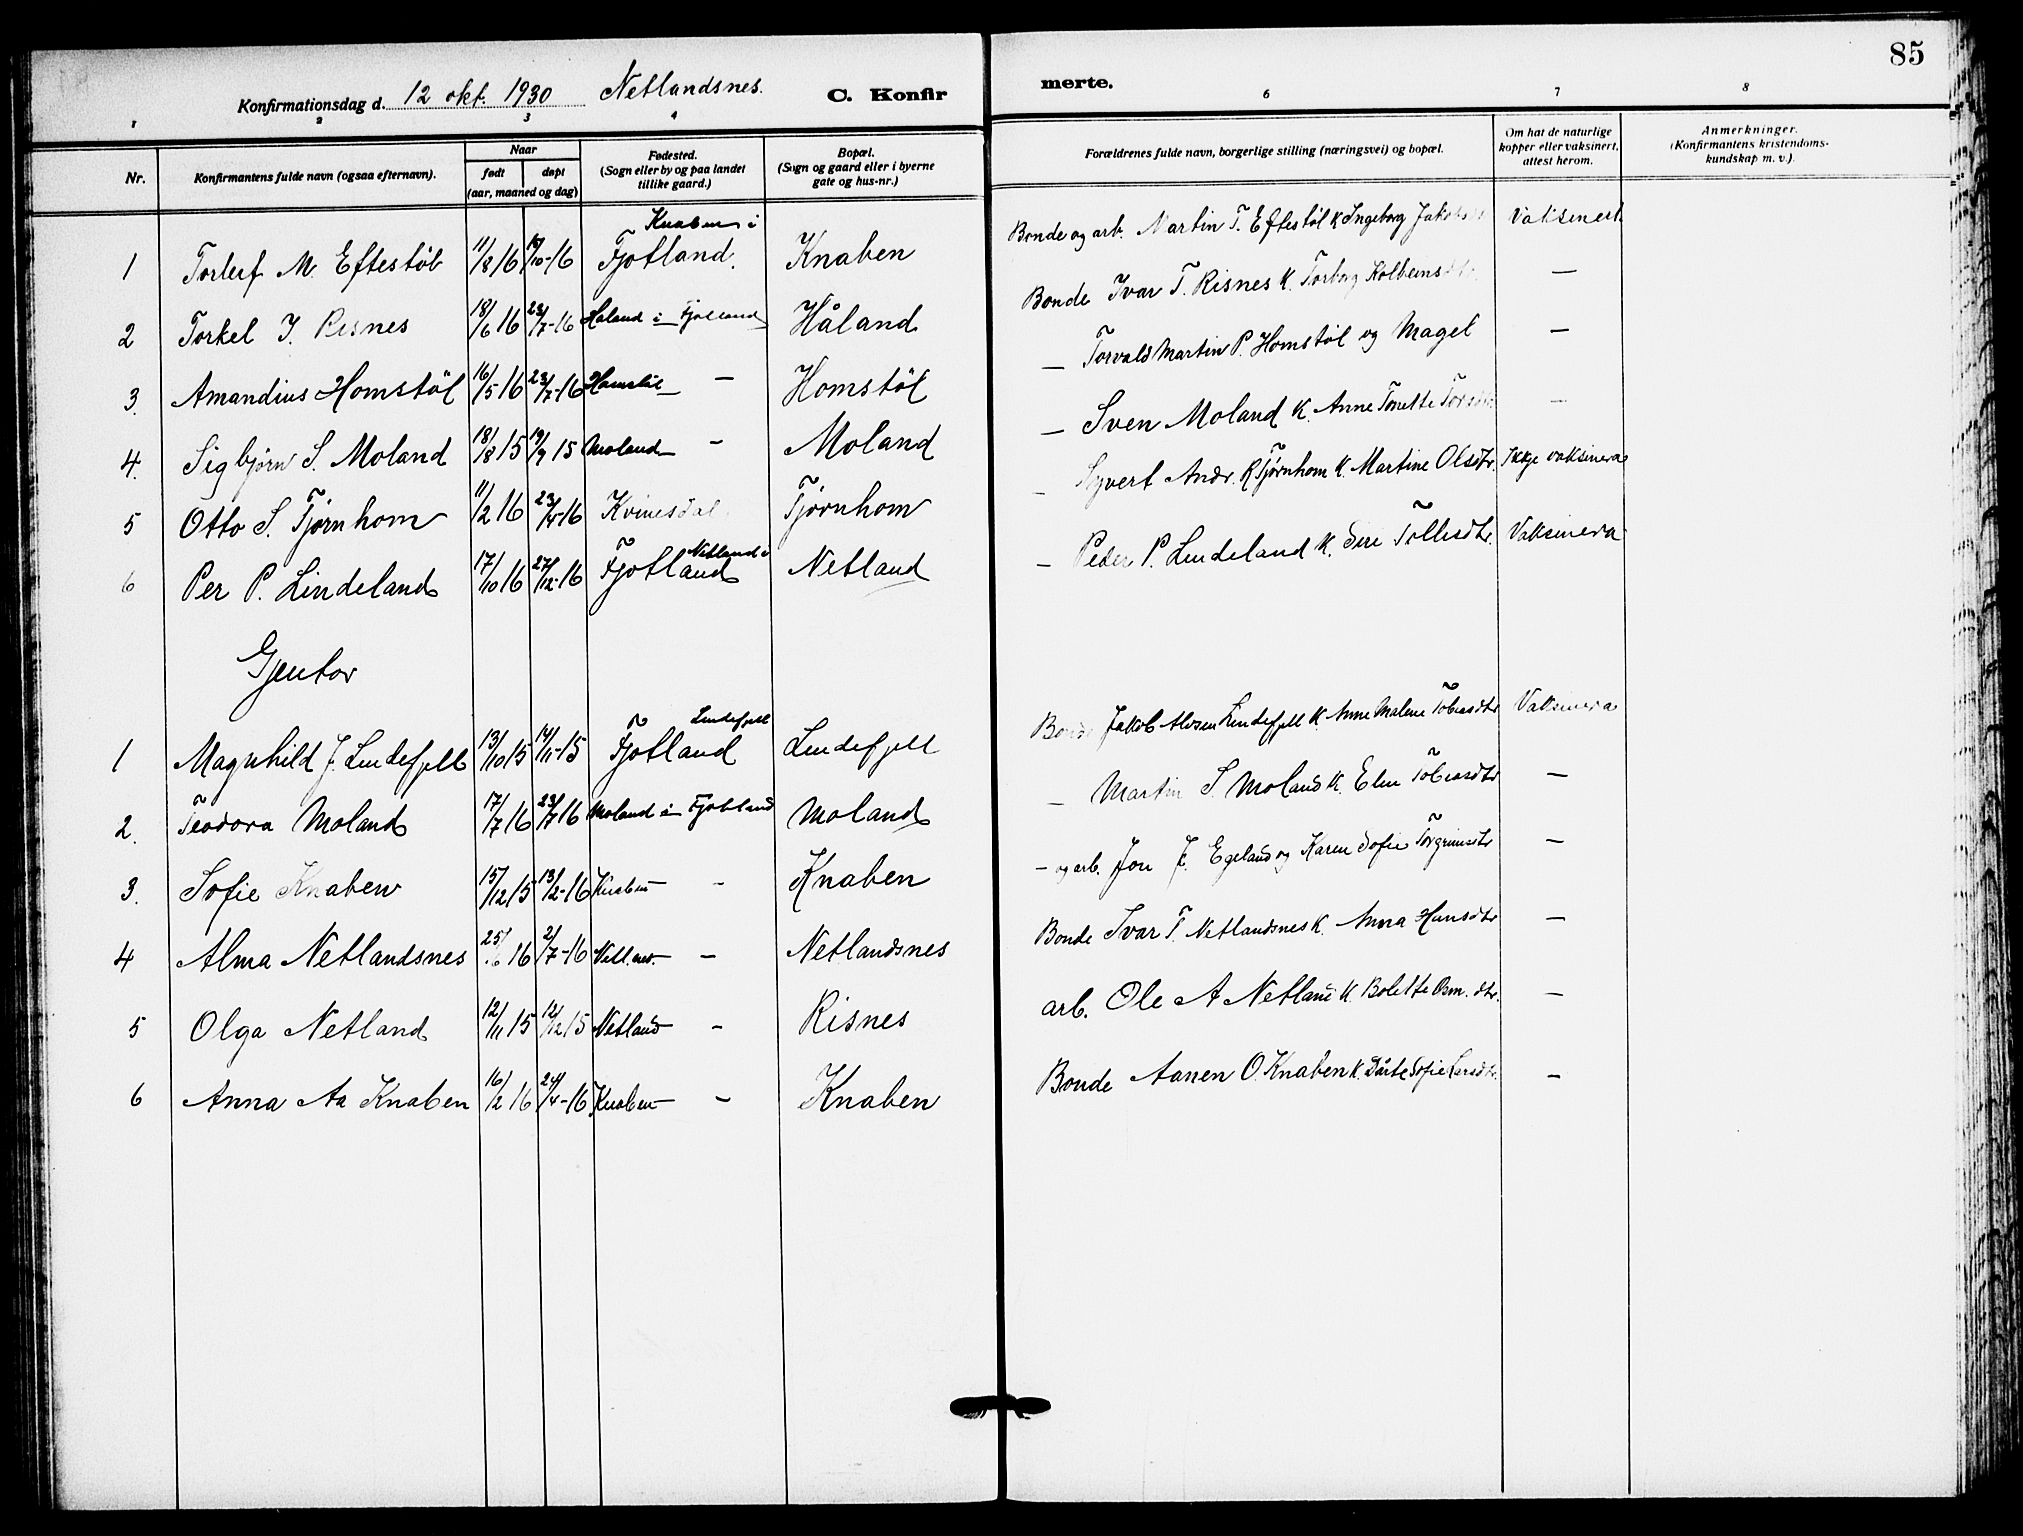 85
Konfirmationsdag d. 12 okt. 1930 Netlandsnes. C. Konfir merte.
1 2 3 4 6 7 8
Nr. Konfirmantens fulde navn (ogsaa efternavn). Naar født døpt (aar, maaned og dag) Fødested. (Sogn eller by og paa landet tillike gaard.) Bopæl. (Sogn og gaard eller i byerne gate og hus-nr.) Forældrenes fulde navn, borgerlige stilling (næringsvei) og bopæl. Om hat de naturlige kopper eller vaksinert, attest herom. Anmerkninger. (Konfirmantens kristendoms-kundskap m. v.).
1 Torleif M. Eftestøl 11/8 16 15/10-16 Knaben i Fjotland. Knaben Bonde og arb. Martin T. Eftestøl K Ingeborg Vaksinert
2 Torkel I. Risnes 18/6 16 23/7-16 Håland i Fjotland Håland Bonde Ivar T. Risnes K. Torborg Kolbeinsdtr. —
3. Amandius Homstøl 16/5 16 23/7-16 Homstøl — Homstøl — Torvald Martin P. Homstøl og Magel —
4. Sigbjørn S. Moland 18/8 15 19/9 15 Moland — Moland — Sven Moland K. Anne Tonette —
5 Otto S. Tjørnhom 11/2 16 23/4-16 Kvinesdal Tjørnhom — Syvert Andr. R Tjørnhom K. Martine Olsdtr. Ikkje vaksinera
6 Per P. Lindeland 17/10 16 27/12-16 Netland i Fjotland Netland — Peder P. Lindeland K. Siri Tollesdtr. Vaksinera
Gjentor
1 Magnhild J. Lindefjell 13/10 15 14/11-15 Lindefjell Fjotland Lindefjell Bonde Jakob Lindefjell K. Anne Malene Tobiasdtr Vaksinera
2. Teodora Moland 17/7 16 23/7 16 Moland i Fjotland Moland — Martin S. Moland K. Elen Tobiasdtr —
3. Sofie Knaben 15/12 15 13/2-16 Knaben — Knaben — og arb. Jon J. Egeland og Karen Sofie Torgrimsdtr —
4 Alma Netlandsnes 25/6 16 2/7-16 Netl.nes. — Netlandsnes Bonde Ivar T. Netlandsnes K. Anna Hansdtr —
5 Olga Netland 12/11 15 12/12 15 Netland — Risnes arb. Ole A Netland K. Bolette Osm. dtr. —
6 Anna Aa Knaben 16/2 16 24/4-16 Knaben — Knaben Bonde Aanen O. Knaben K. Dårte Sofie Larsdtr. —